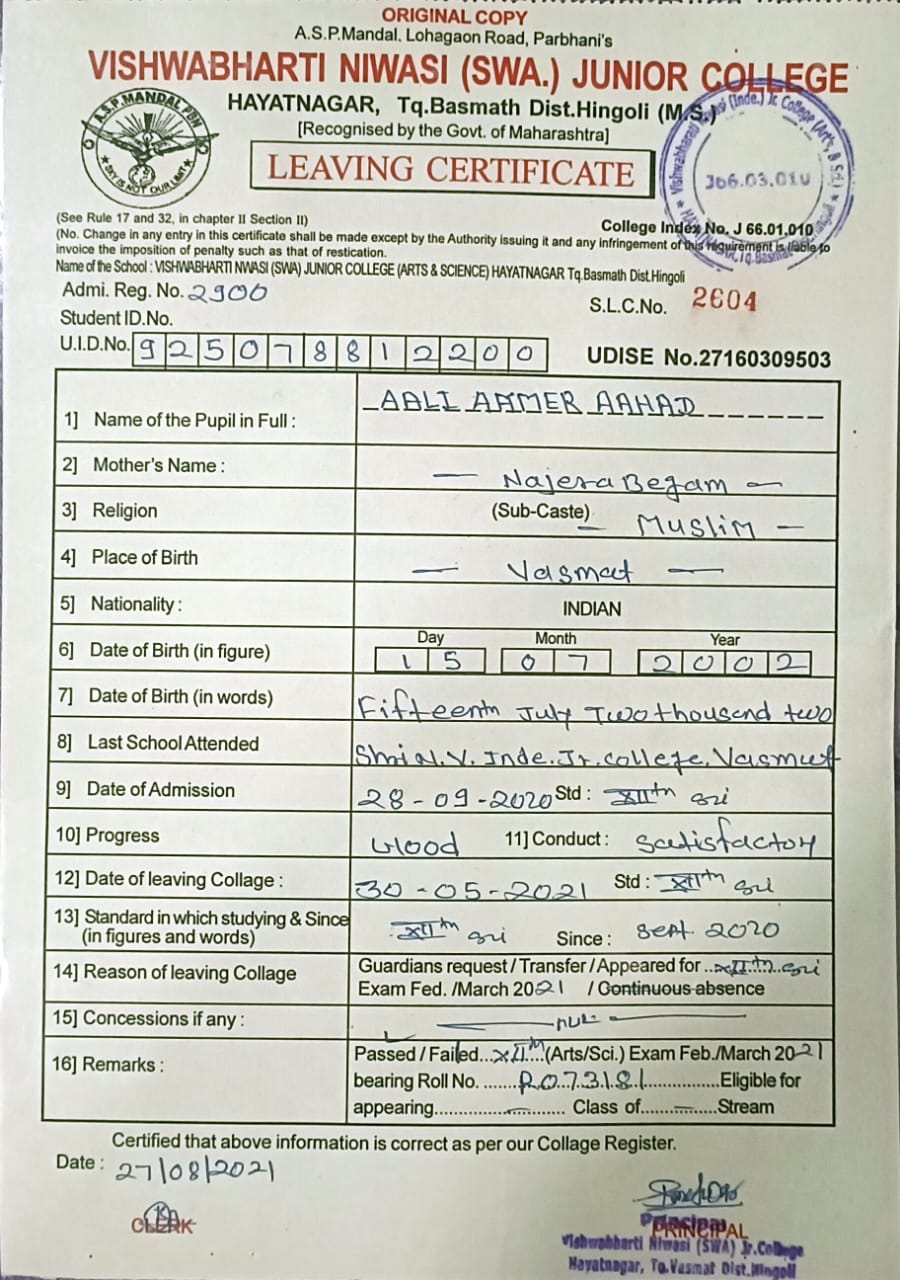 ORIGINAL COPY
A.S.P.Mandal. Lohagaon Road, Parbhani's
VISHWABHARTI NIWASI (SWA.) JUNIOR COLLEGE
HAYATNAGAR, Tq.Basmath Dist.Hingoli (M.S.)
[Recognised by the Govt. of Maharashtra]
A.S.P.MANDAL PBN
SKY IS NOT OUR LIMIT
LEAVING CERTIFICATE
J66.03.010
(See Rule 17 and 32, in chapter II Section II)
College Index No. J 66.01.010
(No. Change in any entry in this certificate shall be made except by the Authority issuing it and any infringement of this requirement is liable to
invoice the imposition of penalty such as that of restication.
Name of the School : VISHWABHARTI NIWASI (SWA) JUNIOR COLLEGE (ARTS & SCIENCE) HAYATNAGAR Tq.Basmath Dist.Hingoli
Admi. Reg. No. 2900
S.L.C.No. 2604
Student ID.No.
U.I.D.No. 925078812200
UDISE No.27160309503
1] Name of the Pupil in Full : AALI AAMER AAHAD
2] Mother's Name : Najera Begam
3] Religion (Sub-Caste) Muslim
4] Place of Birth Vasmat
5] Nationality : INDIAN
Day Month Year
6] Date of Birth (in figure) 15 07 2002
7] Date of Birth (in words) Fifteenth July Two thousand two
8] Last School Attended Shri N.V. Inde. Jr. college, Vasmat
9] Date of Admission 28-09-2020 Std : XIIth sci
10] Progress Good 11] Conduct : Satisfactory
12] Date of leaving Collage : 30-05-2021 Std : XIIth sci
13] Standard in which studying & Since
(in figures and words) XIIth sci Since : Sept. 2020
14] Reason of leaving Collage Guardians request / Transfer / Appeared for ..XIIth..sci
Exam Fed. /March 2021 / Continuous absence
15] Concessions if any : NIL
16] Remarks : Passed / Failed...XIIth...(Arts/Sci.) Exam Feb./March 2021
bearing Roll No. .......R073181..............Eligible for
appearing........................ Class of..............Stream
Certified that above information is correct as per our Collage Register.
Date : 27/08/2021
CLERK
PRINCIPAL
Principal
Vishwabharti Niwasi (SWA) Jr.College
Hayatnagar, Tq.Vasmat Dist.Hingoli